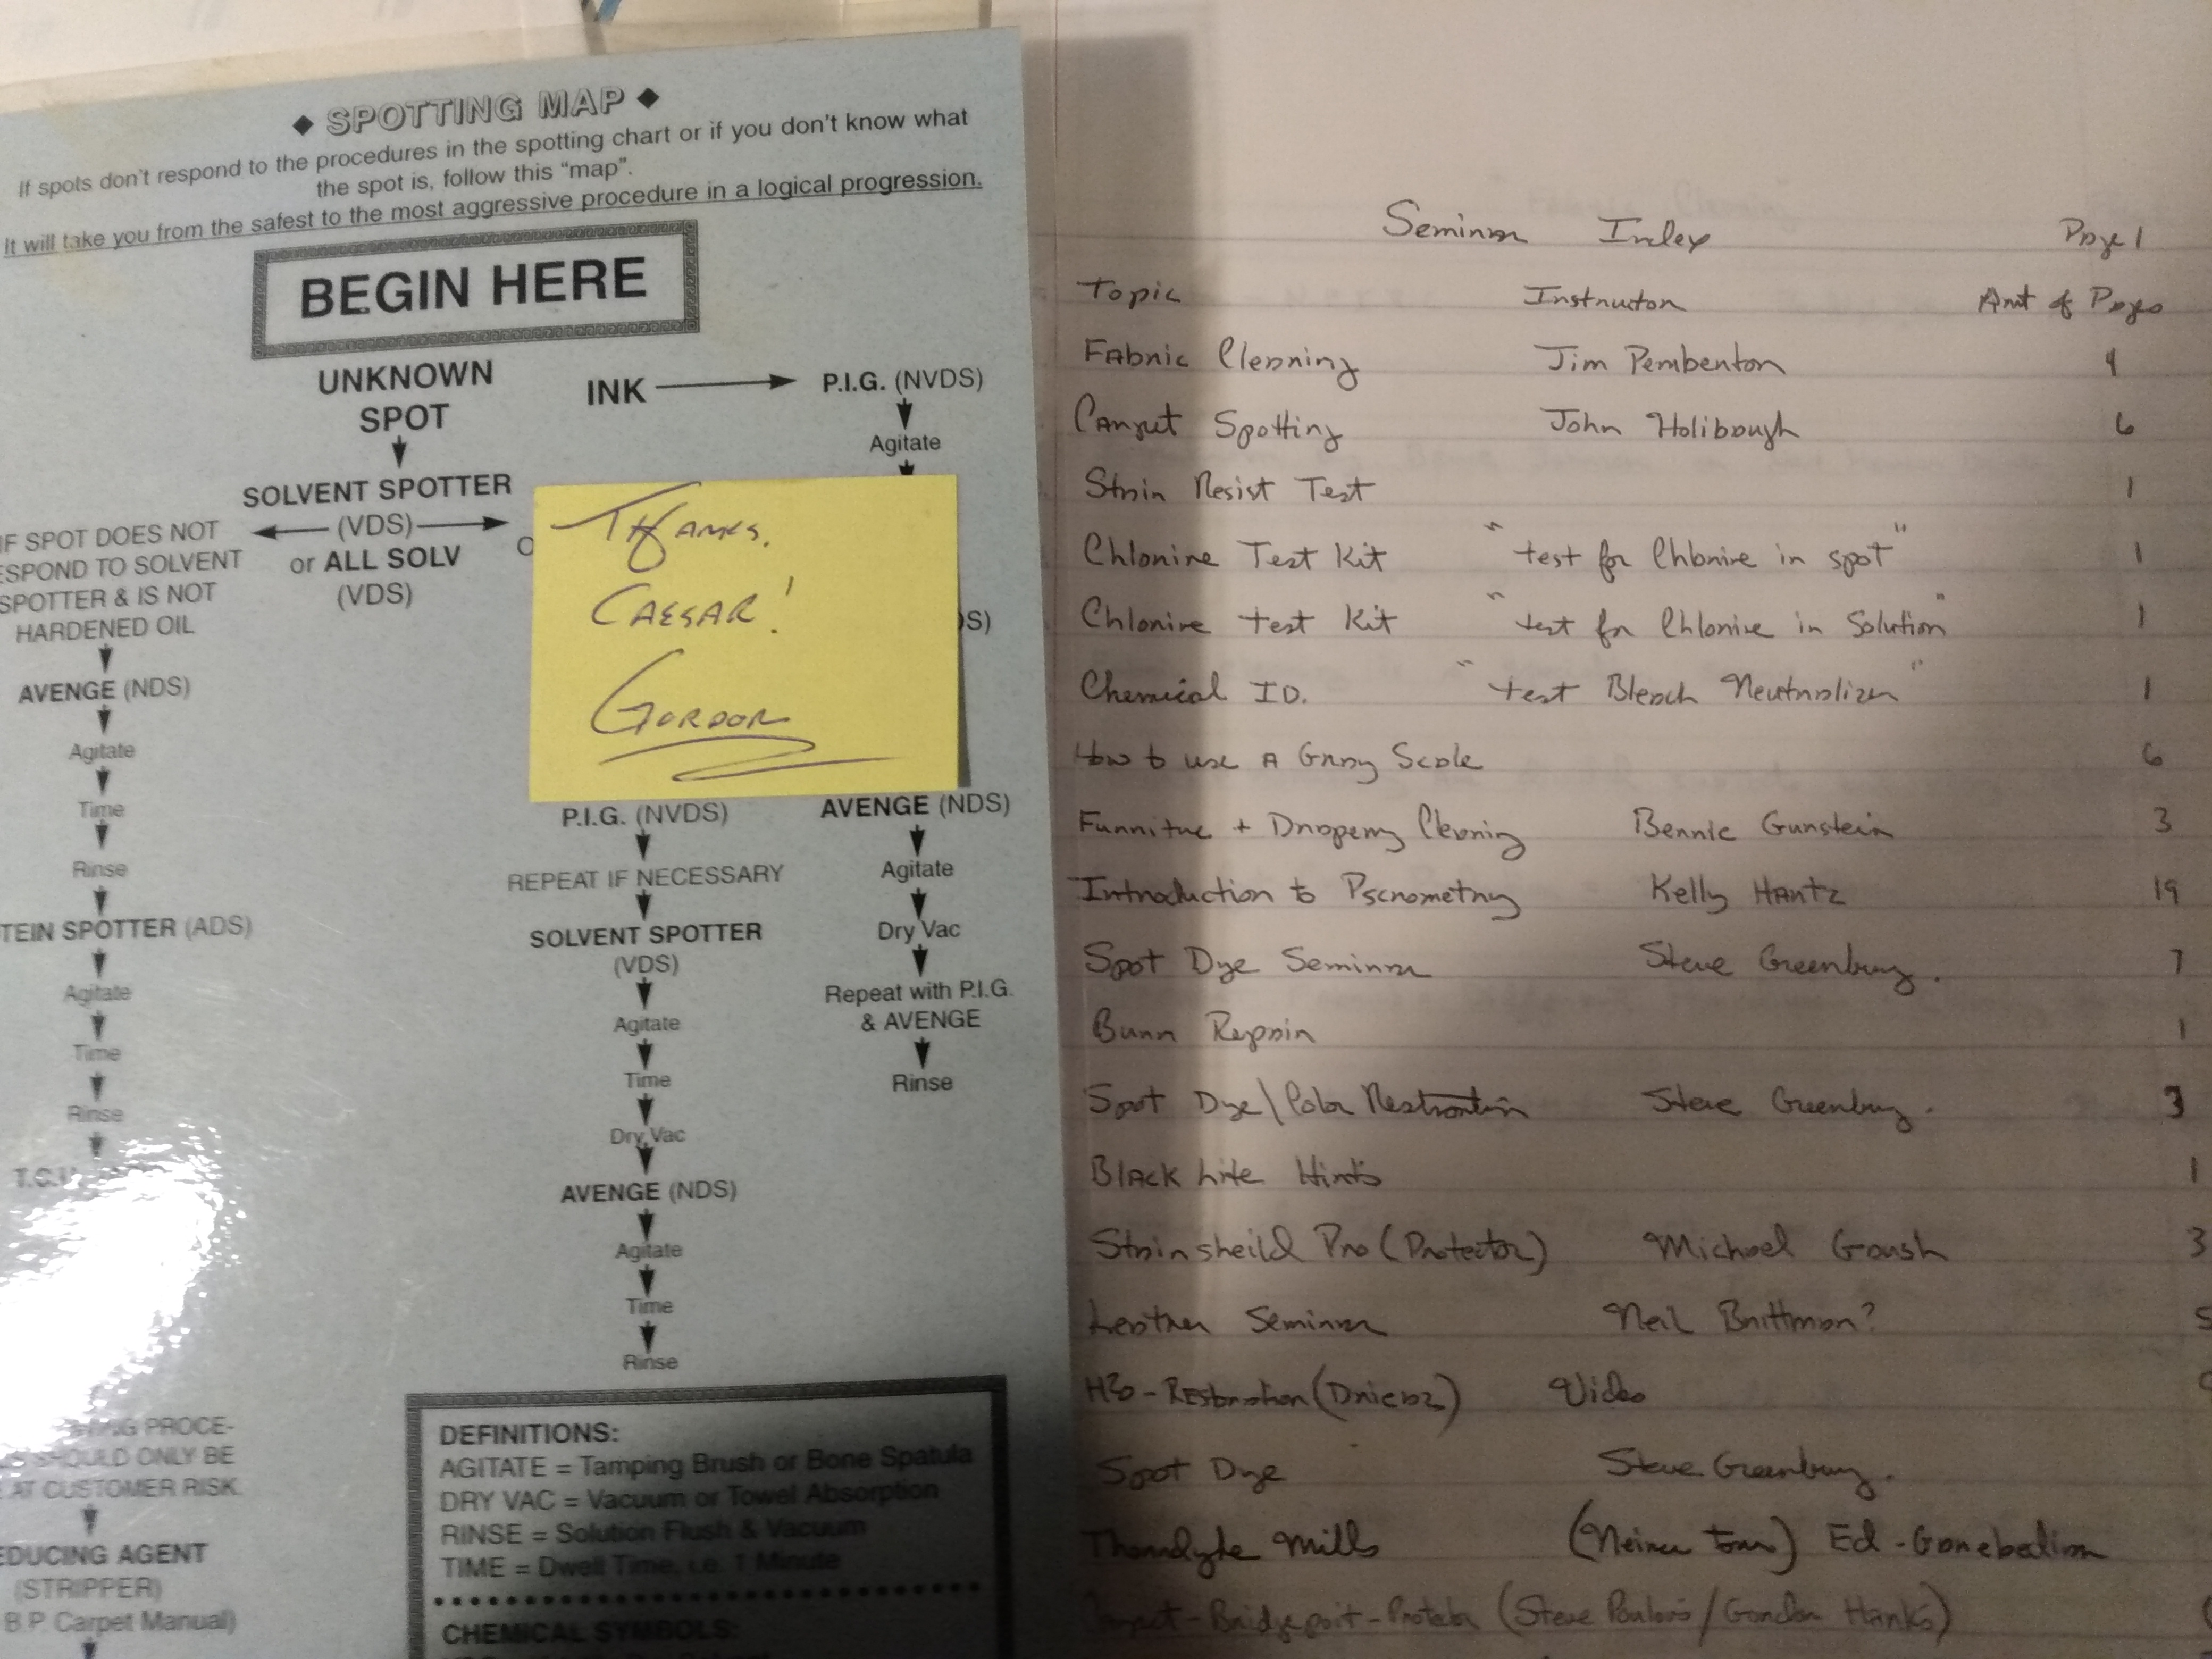 ◆ SPOTTING MAP ◆
If spots don't respond to the procedures in the spotting chart or if you don't know what
the spot is, follow this “map”.
It will take you from the safest to the most aggressive procedure in a logical progression.
BEGIN HERE
UNKNOWN
SPOT
SOLVENT SPOTTER
(VDS)
or ALL SOLV
(VDS)
IF SPOT DOES NOT
ESPOND TO SOLVENT
SPOTTER & IS NOT
HARDENED OIL
AVENGE (NDS)
Agitate
Time
Rinse
TEIN SPOTTER (ADS)
Agitate
Time
Rinse
PROCE-
SHOULD ONLY BE
AT CUSTOMER RISK.
EDUCING AGENT
(STRIPPER)
B.P. Carpet Manual)
INK
P.I.G. (NVDS)
Agitate
Thanks,
Caesar!
Gordon
P.I.G. (NVDS)
REPEAT IF NECESSARY
SOLVENT SPOTTER
(VDS)
Agitate
Time
Dry Vac
AVENGE (NDS)
Agitate
Time
Rinse
AVENGE (NDS)
Agitate
Dry Vac
Repeat with P.I.G.
& AVENGE
Rinse
DEFINITIONS:
AGITATE = Tamping Brush or Bone Spatula
DRY VAC = Vacuum or Towel Absorption
RINSE = Solution Flush & Vacuum
TIME = Dwell Time, i.e. 1 Minute
CHEMICAL SYMBOLS:
Seminar Index Page 1
Topic Instructor Amt of Pages
Fabric Cleaning Jim Pemberton 4
Carpet Spotting John Holibaugh 6
Stain Resist Test 1
Chlorine Test Kit "test for Chlorine in spot" 1
Chlorine test Kit "test for Chlorine in Solution" 1
Chemical ID. "test Bleach Neutralizer" 1
How to use A Gray Scale 6
Furnitue + Drapery Cleaning Bernie Gunstein 3
Introduction to Pscrometry Kelly Hartz 19
Spot Dye Seminar Steve Greenburg. 7
Burn Repair 1
Spot Dye/Color Restoration Steve Greenburg. 3
Black Lite Hints 1
Stainsheild Pro (Protector) Michael Goush 3
Leather Seminar Neil Brittman? 5
H2O-Restoration (Drieaz) Video
Spot Dye Steve Greenburg.
Thorndyke Mills Ed
Bridgeport